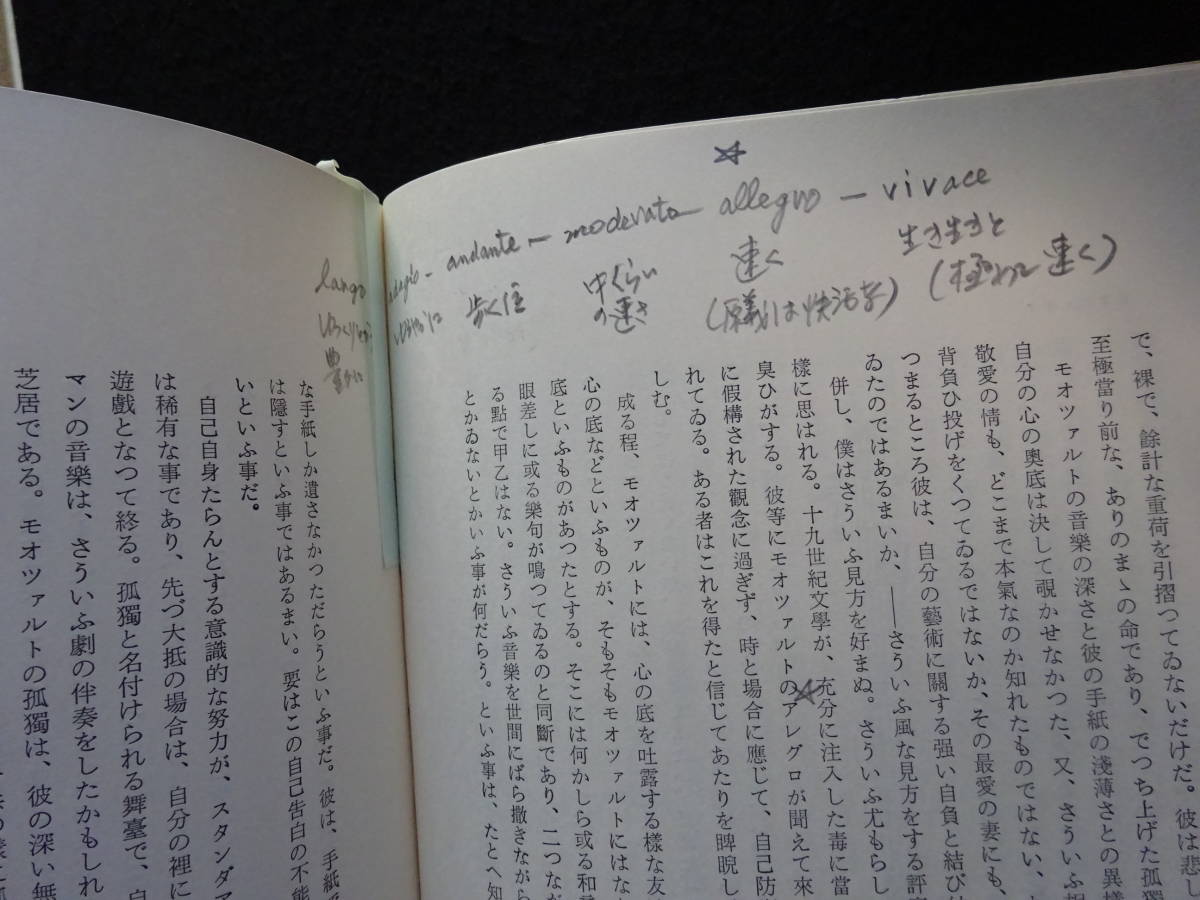 largo adagio - andante - moderato allegro - vivace
ゆるやかに 歩く位 中くらい の速さ 速く 生き生きと
豊かに (原義は快活な) (極めて速く)
で、裸で、餘計な重荷を引摺つてゐないだけだ。彼は悲し
至極當り前な、ありのまゝの命であり、でつち上げた孤獨
モオツァルトの音樂の深さと彼の手紙の淺薄さとの異様
自分の心の奥底は決して覗かせなかつた、又、さういふ
敬愛の情も、どこまで本氣なのか知れたものではない、
背負ひ投げをくつてゐるではないか、その最愛の妻にも、
つまるところ彼は、自分の藝術に關する强い自負と結び
ゐたのではあるまいか、――さういふ風な見方をする評
併し、僕はさういふ見方を好まぬ。さういふ尤もらし
樣に思はれる。十九世紀文學が、充分に注入した毒に當
臭ひがする。彼等にモオツァルトのアレグロが聞えて來
に假構された觀念に過ぎず、時と場合に應じて、自己防
れてゐる。ある者はこれを得たと信じてあたりを睥睨し
しむ。
成る程、モオツァルトには、心の底を吐露する樣な友
心の底などといふものが、そもそもモオツァルトにはな
底といふものがあつたとする。そこには何かしら或る和
眼差しに或る樂句が鳴つてゐるのと同斷であり、二つな
る點で甲乙はない。さういふ音樂を世間にばら撒きながら
とかゐないとかいふ事が何だらう。といふ事は、たとへ知
な手紙しか遺さなかつただらうといふ事だ。彼は、手紙
は隱すといふ事ではあるまい。要はこの自己告白の不能
いといふ事だ。
自己自身たらんとする意識的な努力が、スタンダア
は稀有な事であり、先づ大抵の場合は、自分の裡に
遊戲となつて終る。孤獨と名付けられる舞臺で、自
マンの音樂は、さういふ劇の伴奏をしたかもしれ
芝居である。モオツァルトの孤獨は、彼の深い無